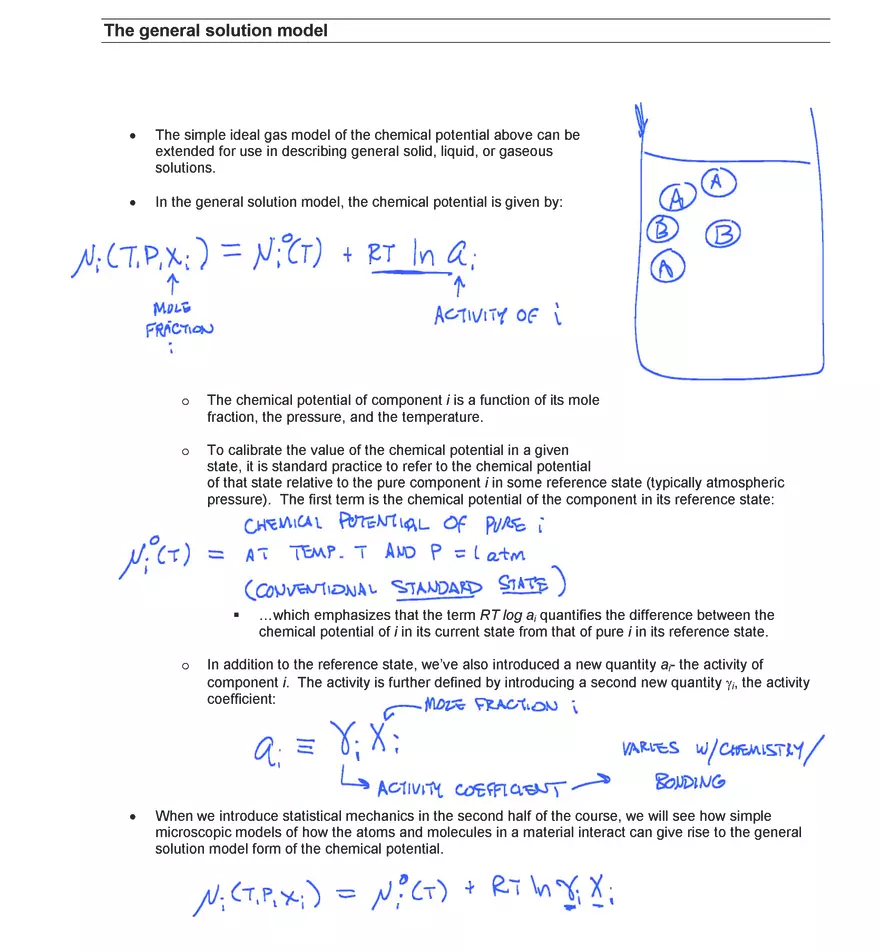 The general solution model
• The simple ideal gas model of the chemical potential above can be
extended for use in describing general solid, liquid, or gaseous
solutions.
• In the general solution model, the chemical potential is given by:
A
A
B
B
A
μᵢ(T,P,Xᵢ) = μᵢ⁰(T) + RT ln aᵢ
↑
MOLE
FRACTION
i
↑
ACTIVITY OF i
o The chemical potential of component i is a function of its mole
fraction, the pressure, and the temperature.
o To calibrate the value of the chemical potential in a given
state, it is standard practice to refer to the chemical potential
of that state relative to the pure component i in some reference state (typically atmospheric
pressure). The first term is the chemical potential of the component in its reference state:
CHEMICAL POTENTIAL OF PURE i
μᵢ⁰(T) = AT TEMP. T AND P = 1 atm
(CONVENTIONAL STANDARD STATE)
▪ …which emphasizes that the term RT log aᵢ quantifies the difference between the
chemical potential of i in its current state from that of pure i in its reference state.
o In addition to the reference state, we've also introduced a new quantity aᵢ- the activity of
component i. The activity is further defined by introducing a second new quantity γᵢ, the activity
coefficient:
MOLE FRACTION i
aᵢ ≡ γᵢ Xᵢ
ACTIVITY COEFFICIENT → VARIES W/CHEMISTRY/
BONDING
• When we introduce statistical mechanics in the second half of the course, we will see how simple
microscopic models of how the atoms and molecules in a material interact can give rise to the general
solution model form of the chemical potential.
μᵢ(T,P,Xᵢ) = μᵢ⁰(T) + RT ln γᵢ Xᵢ